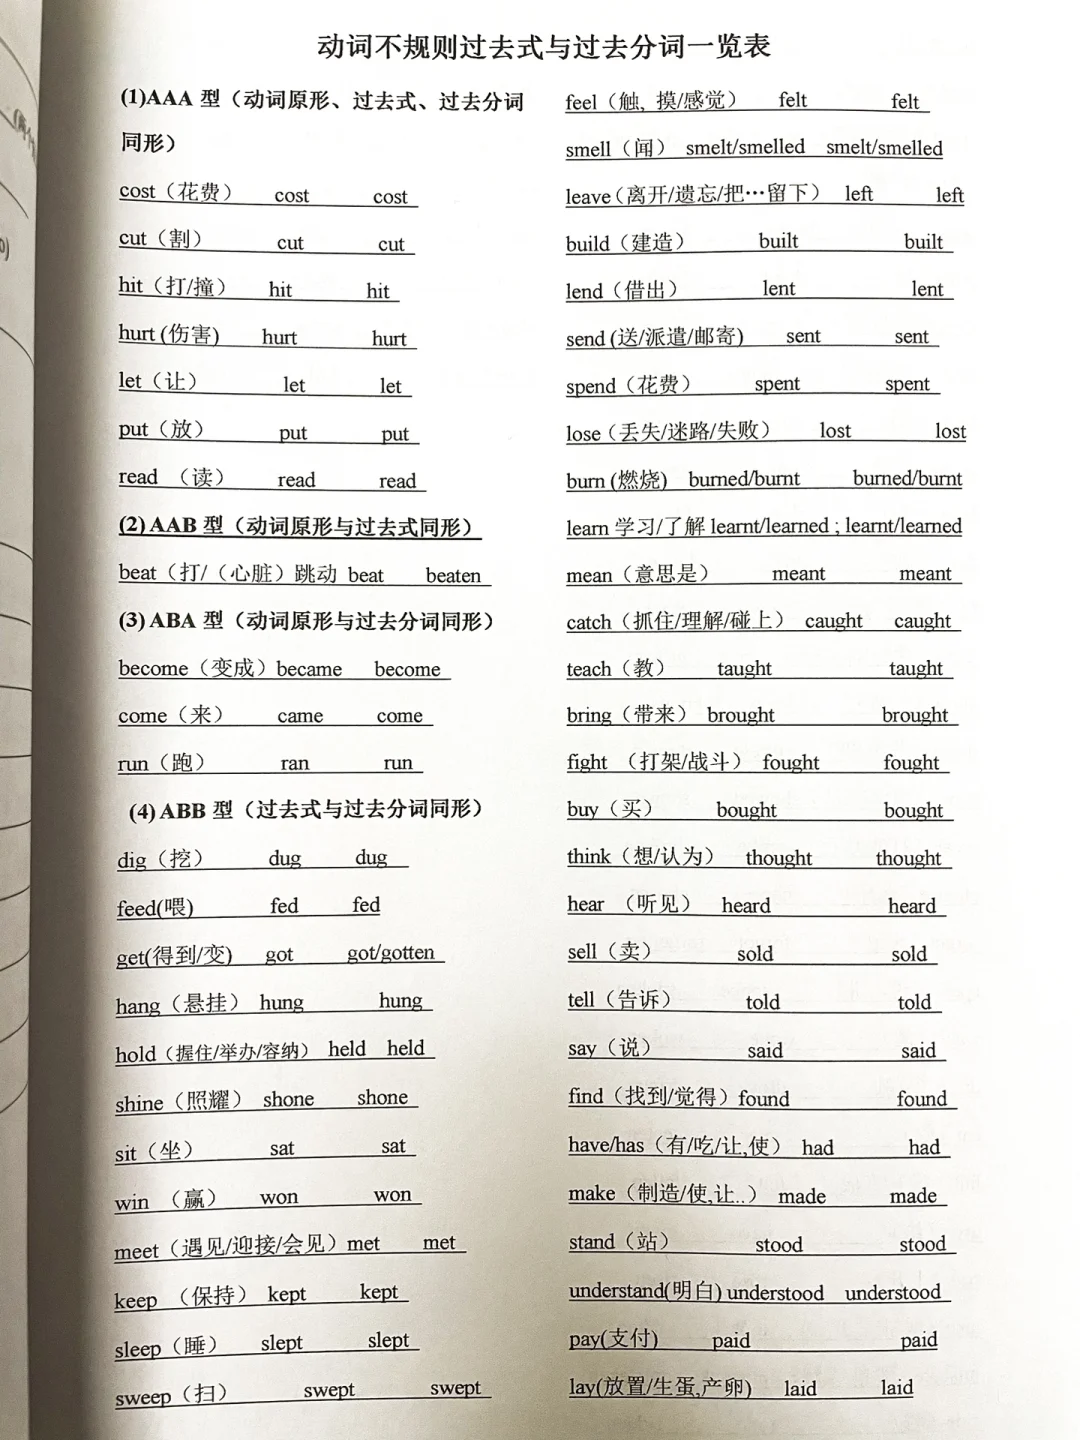 动词不规则过去式与过去分词一览表
(1)AAA 型（动词原形、过去式、过去分词
同形）
cost（花费） cost cost
cut（割） cut cut
hit（打/撞） hit hit
hurt (伤害) hurt hurt
let（让） let let
put（放） put put
read （读） read read
(2) AAB 型（动词原形与过去式同形）
beat（打/（心脏）跳动 beat beaten
(3) ABA 型（动词原形与过去分词同形）
become（变成）became become
come（来） came come
run（跑） ran run
(4) ABB 型（过去式与过去分词同形）
dig（挖） dug dug
feed(喂) fed fed
get(得到/变) got got/gotten
hang（悬挂） hung hung
hold（握住/举办/容纳） held held
shine（照耀） shone shone
sit（坐） sat sat
win （赢） won won
meet（遇见/迎接/会见）met met
keep （保持） kept kept
sleep（睡） slept slept
sweep（扫） swept swept
feel（触, 摸/感觉） felt felt
smell（闻） smelt/smelled smelt/smelled
leave（离开/遗忘/把…留下） left left
build（建造） built built
lend（借出） lent lent
send (送/派遣/邮寄) sent sent
spend（花费） spent spent
lose（丢失/迷路/失败） lost lost
burn (燃烧) burned/burnt burned/burnt
learn 学习/了解 learnt/learned ; learnt/learned
mean（意思是） meant meant
catch（抓住/理解/碰上） caught caught
teach（教） taught taught
bring（带来） brought brought
fight （打架/战斗） fought fought
buy（买） bought bought
think（想/认为） thought thought
hear （听见） heard heard
sell（卖） sold sold
tell（告诉） told told
say（说） said said
find（找到/觉得）found found
have/has（有/吃/让,使） had had
make（制造/使,让..） made made
stand（站） stood stood
understand(明白) understood understood
pay(支付) paid paid
lay(放置/生蛋,产卵) laid laid